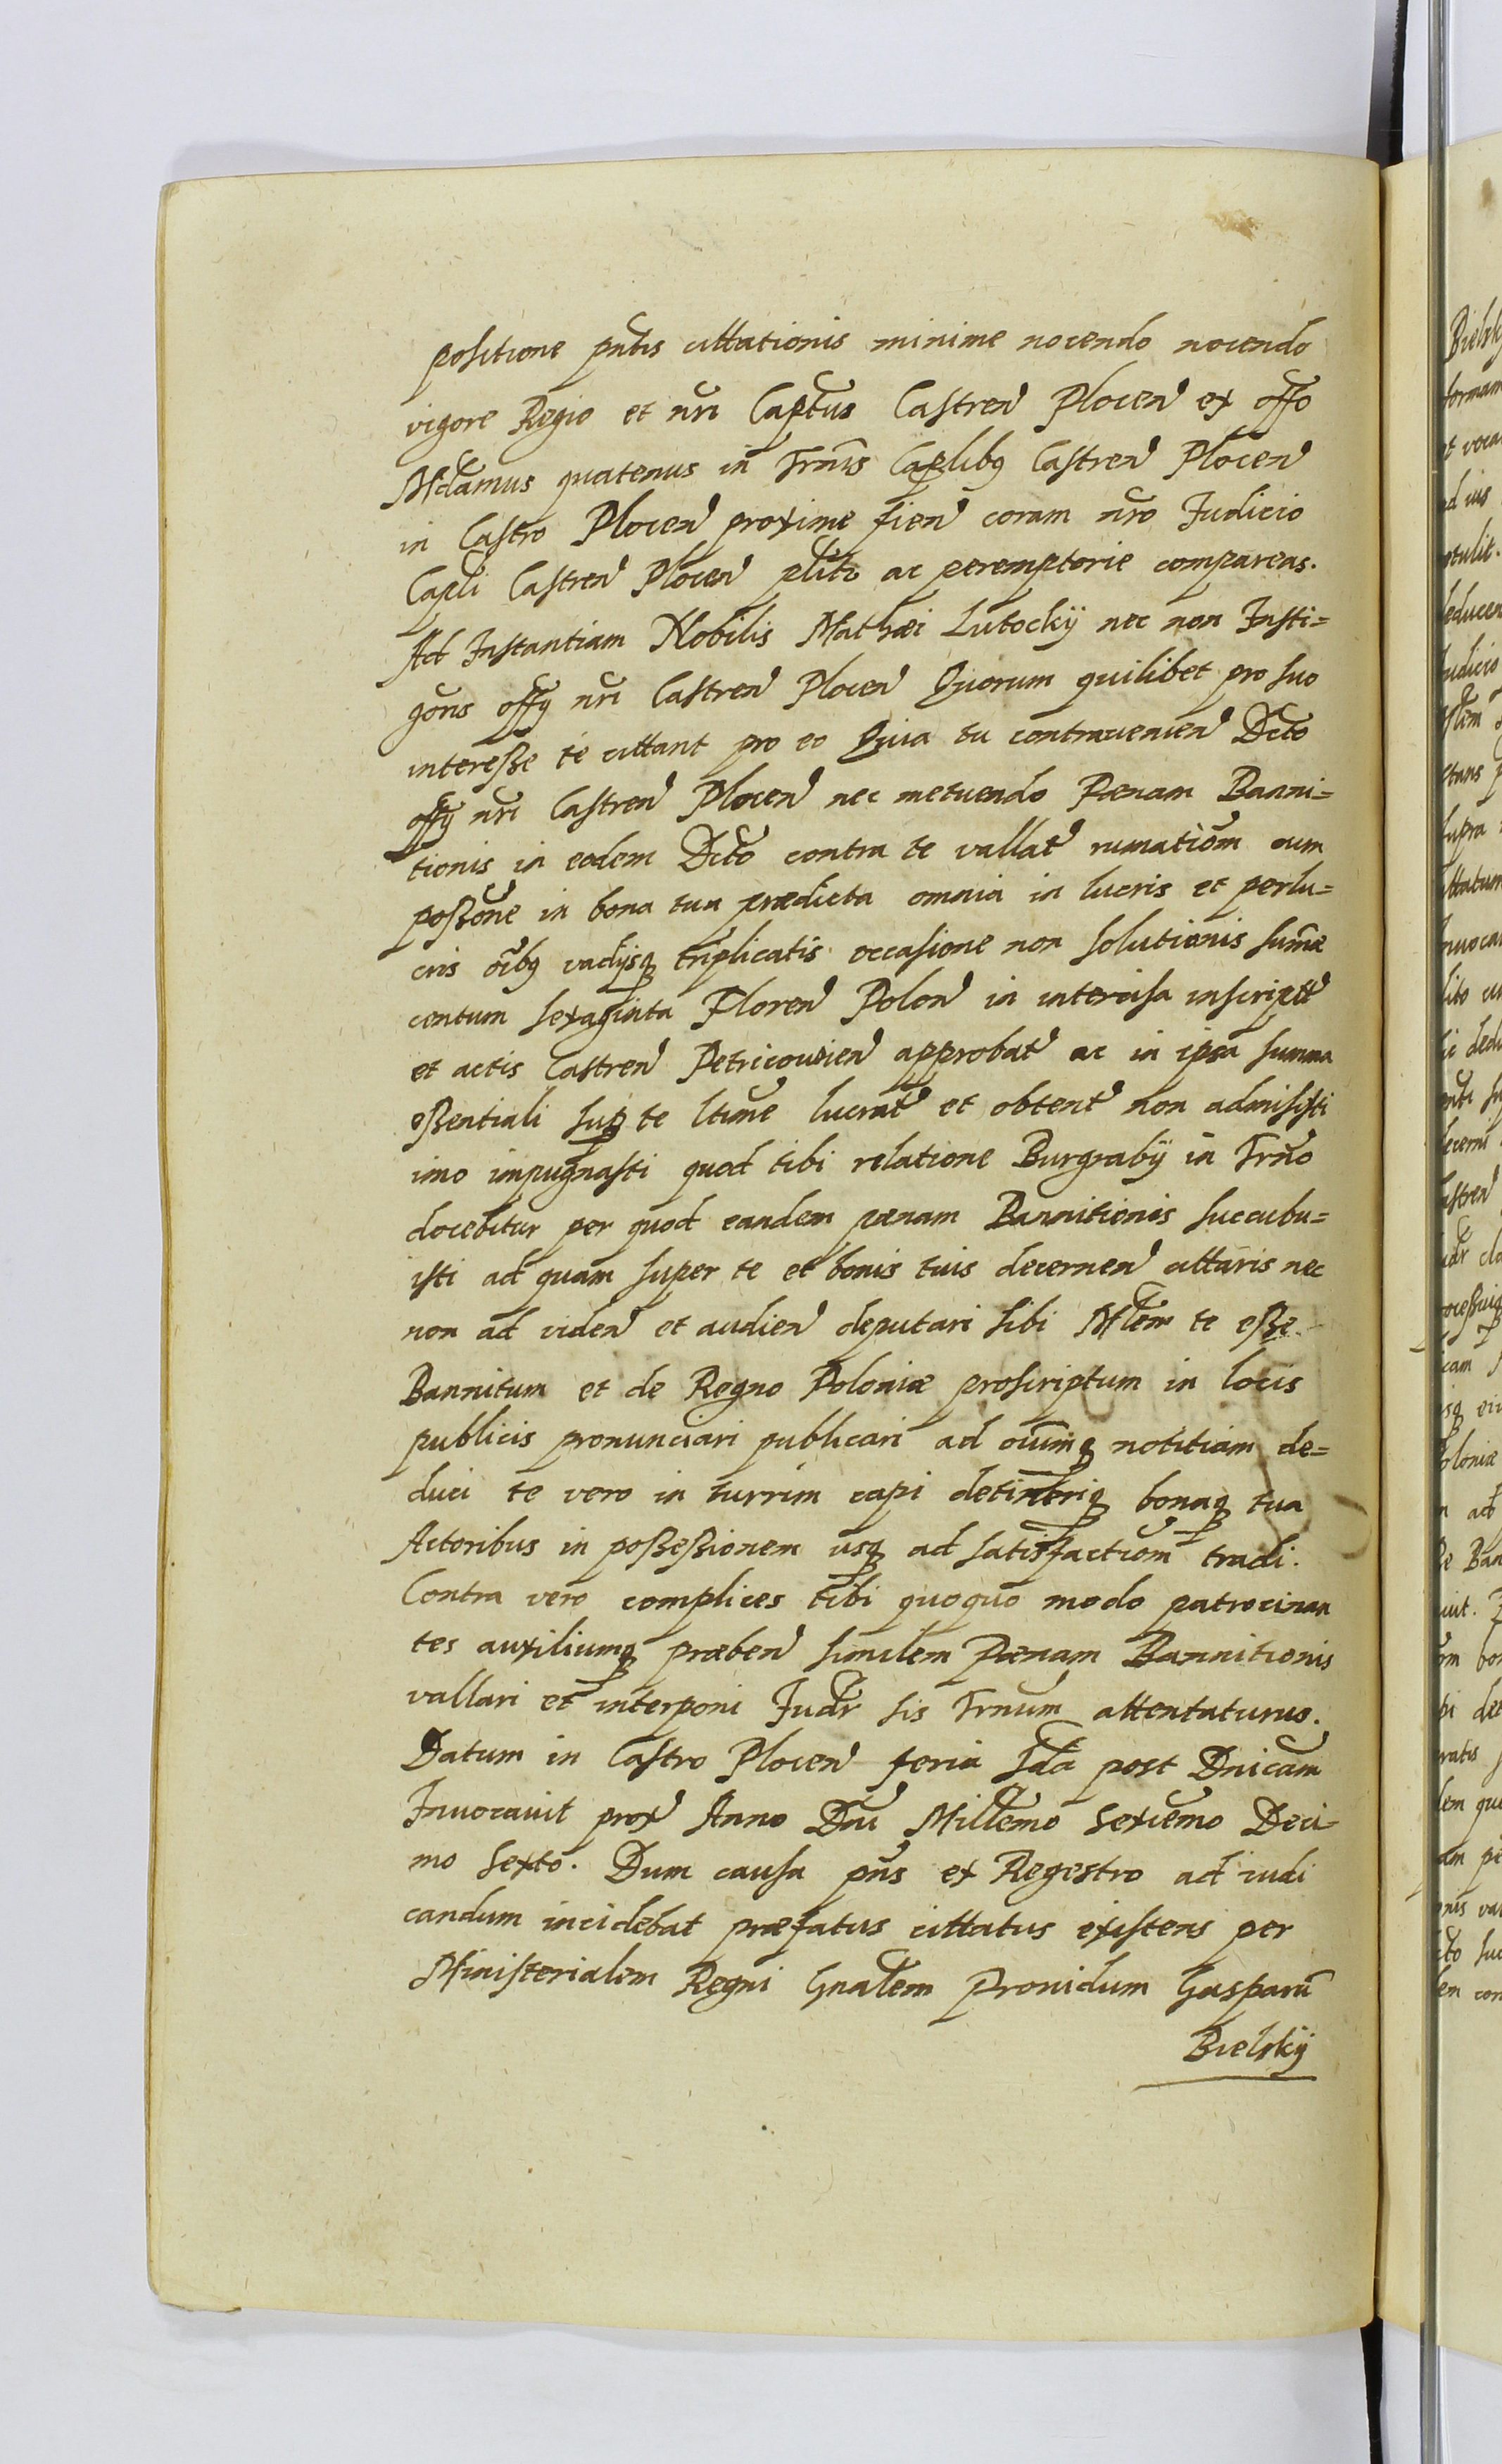 positione pntis cittationis minime nocendo nocendo
vigore Regio et nri Captus Castren Plocen ex offo
Mdamus quatenus in Trnis Caplibq Castren Plocen
in Castro Plocen proxime fien coram nro Judicio
Capli Castren Plocen plitr ac peremptorie compareas.
Ad Instantiam Nobilis Mathæi Lutockÿ nec non Insti=
goris offÿ nri Castren Plocen Quorum quilibet pro suo
interesse te cittant pro eo Quia tu contravenien Dcto
offÿ nri Castren Plocen nec metuendo Pœnam Banni=
tionis in eodem Dcto contra te vallat rumationem
possone in bona tua prædicta omnia in lucris et perlu=
cris oibq vadÿsq triplicatis occasione non solutionis sumæ
centum sexaginta Floren Polon in intercisa inscript
et actis Castren Petricovien approbat ac in ipsa summa
essentiali sup te ltime lucrat et obtent non admisisti
imo impugnasti quod tibi relatione Burgrabÿ in Trno
docebitur per quod eandem pœnam Bannitionis succubu=
isti ad quam super te et bonis tuis decernen cittaris nec
non ad viden et audien deputari sibi Mlem te esse
Bannitum et de Regno Poloniæ proscriptum in locis
publicis pronunciari publicari ad oiumq notitiam de=
duci te vero in turrim capi detineriq bonaq tua
Actoribus in possessionem usq ad satisfactiom tradi.
Contra vero complices tibi quoquo modo patrocinan
tes auxiliumq præben similem Pœnam Bannitionis
vallari et interponi Judr sis Trnum attentaturus.
Datum in Castro Plocen feria Sda post Dnicam
Invocavit prox Anno Dni Millemo Sexcemo Deci=
mo Sexto. Dum causa pns ex Regestro ad iudi
candum incidebat præfatus cittatus existens per
Ministerialem Regni Gnalem Providum Gasparu
Bielskÿ